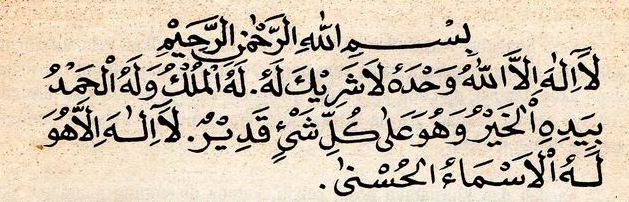 بِسْمِ اللهِ الرَّحْمٰنِ الرَّحِيْمِ
لَآاِلٰهَ اِلَّا اللهُ وَحْدَهُ لَا شَرِيْكَ لَهُ. لَهُ الْمُلْكُ وَلَهُ الْحَمْدُ
بِيَدِهِ الْخَيْرُ وَهُوَ عَلٰى كُلِّ شَئٍ قَدِيْرٌ. لَآاِلٰهَ اِلَّا هُوَ
لَهُ الْاَسْمَاءُ الْحُسْنٰى.